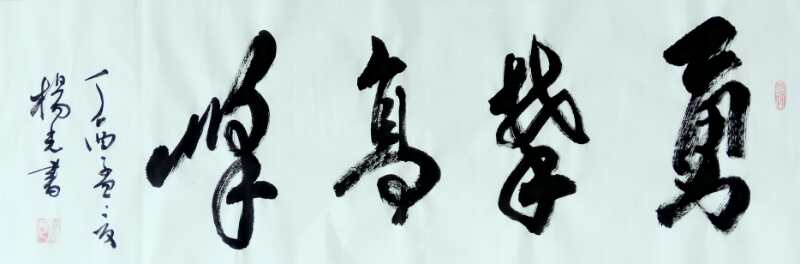 勇攀高峰
丁酉孟夏
楊光書